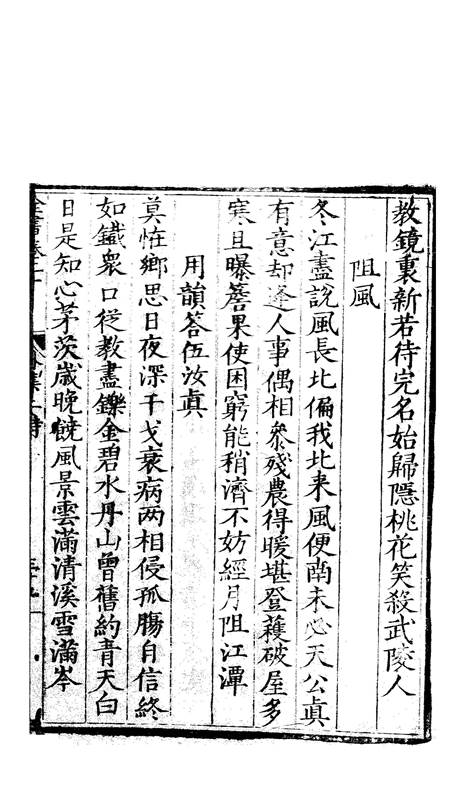 教鏡裏新若待完名始歸隱桃花笑殺武陵人
阻風
冬江盡說風長北偏我北来風便南未必天公眞
有意却逢人事偶相參殘農得暖堪登穫破屋多
寒且曝簷果使困窮能稍濟不妨經月阻江潭
用韻答伍汝眞
莫恠鄉思日夜深干戈衰病两相侵孤腸自信終
如鐵衆口從教盡鑠金碧水丹山曾舊約青天白
日是知心茅茨歲晚饒風景雲滿清溪雪滿岑